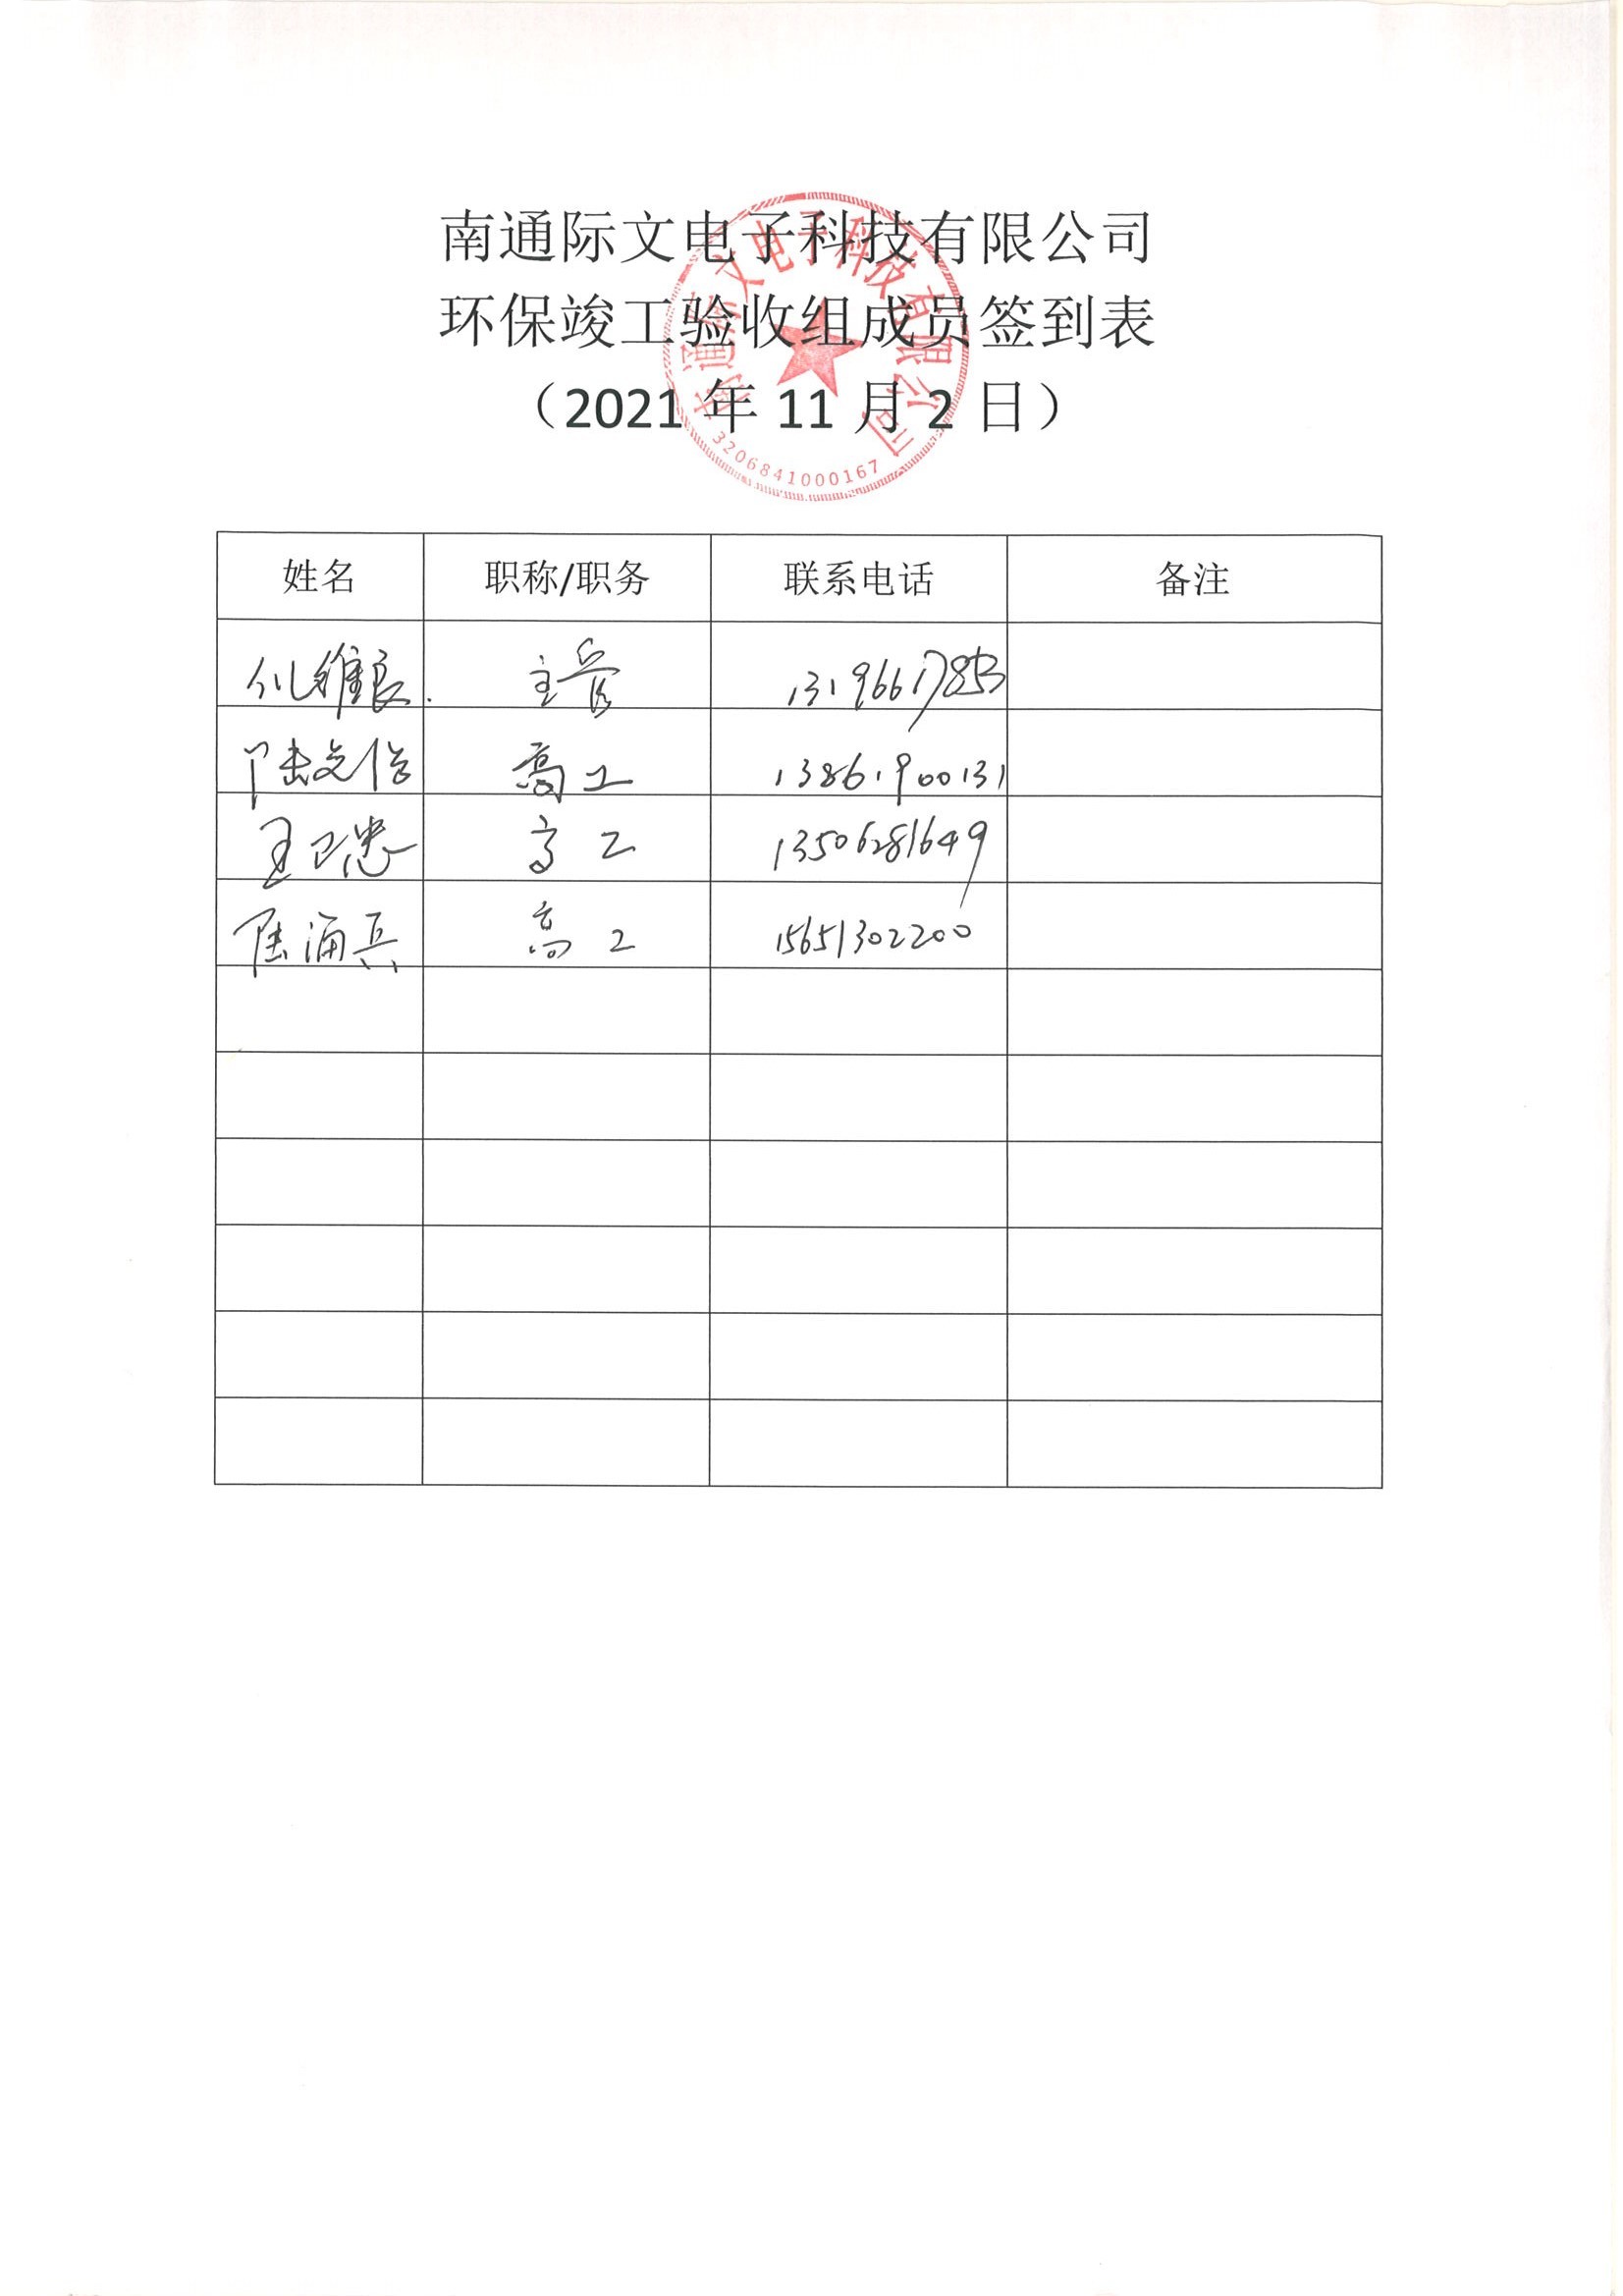 南通际文电子科技有限公司
环保竣工验收组成员签到表
（2021 年 11 月 2 日）
南通际文电子科技有限公司
3206841000167
姓名 职称/职务 联系电话 备注
维良 主管
陆 高工 13861900131
王卫 高工 13506281649
陆涌兵 高工 15651302200